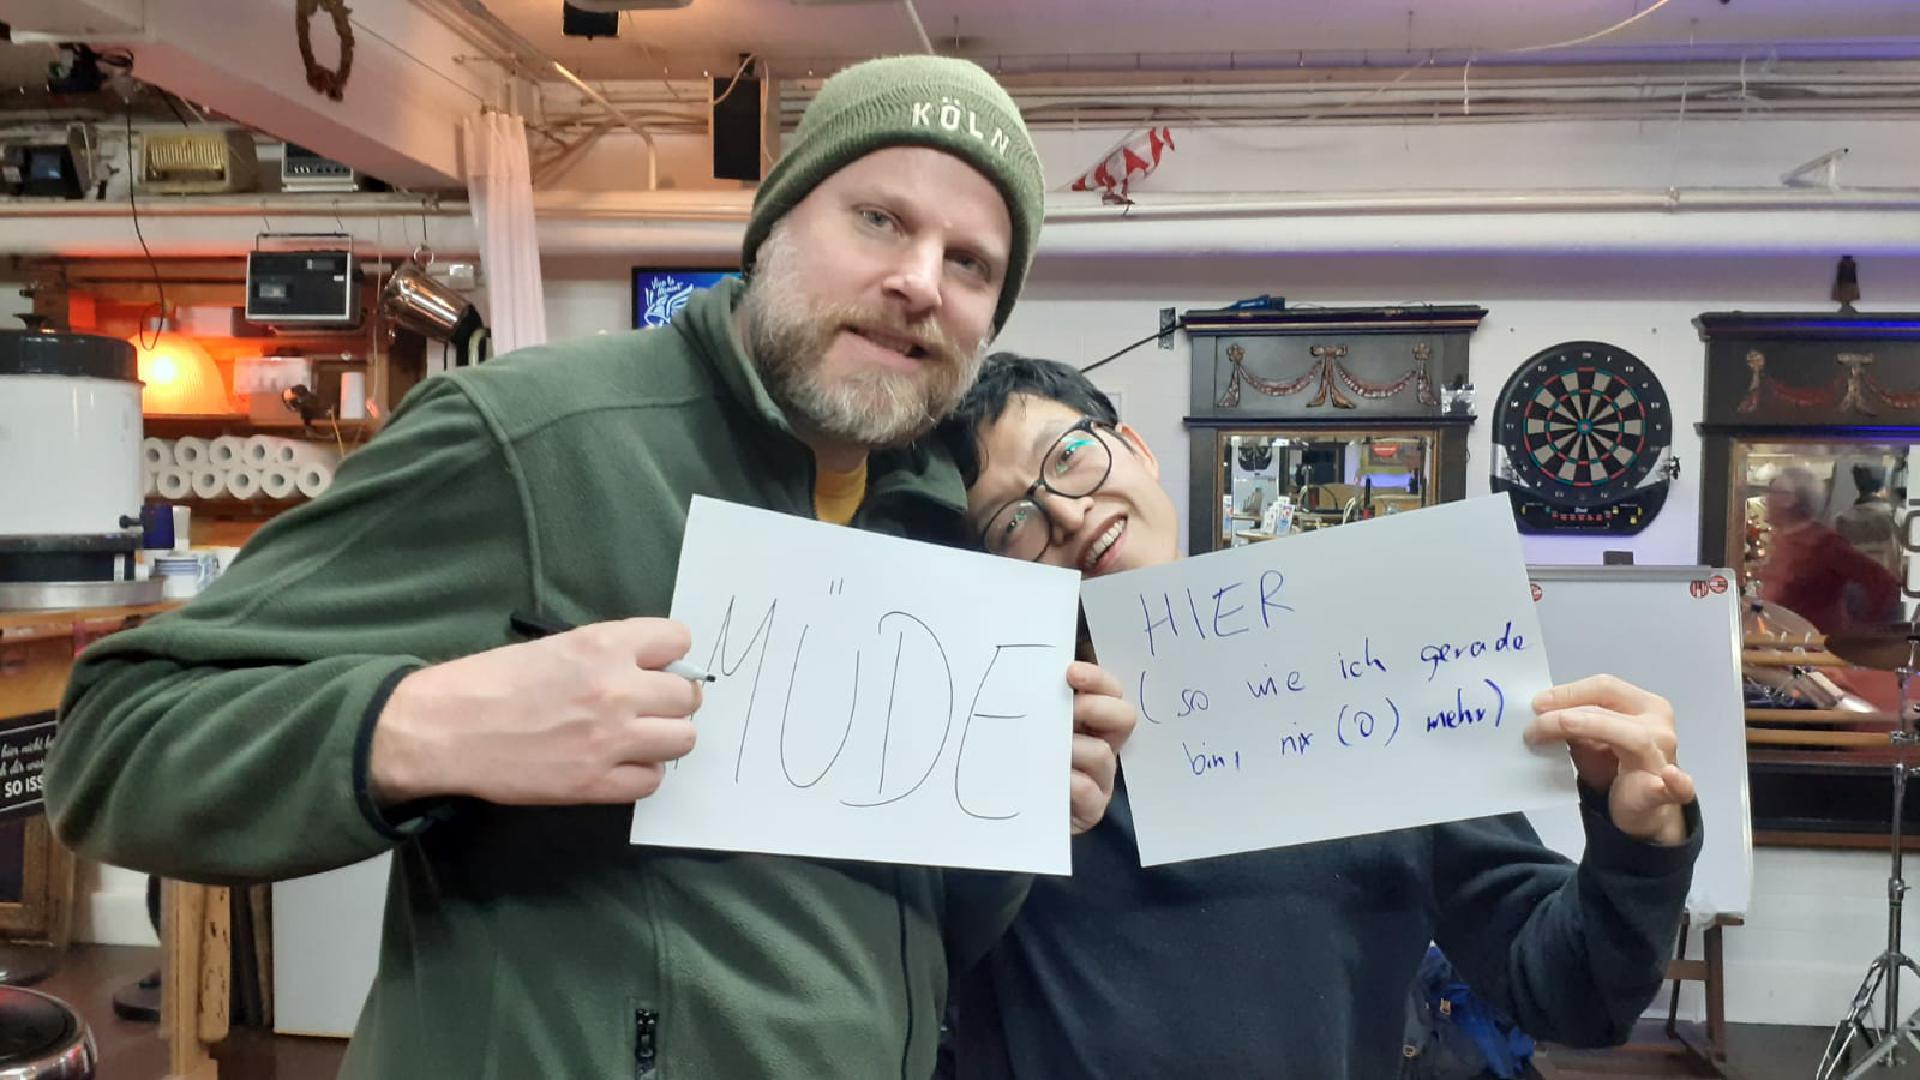 KÖLN
MÜDE
HIER
(so wie ich gerade
bin, nix (0) mehr)
SO ISS